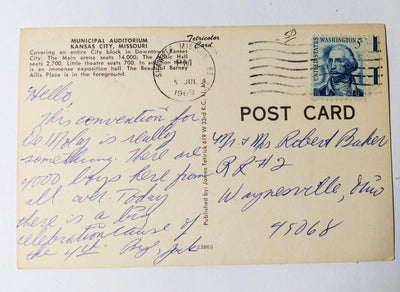 MUNICIPAL AUDITORIUM
KANSAS CITY, MISSOURI
Tetricolor
Card
Covering an entire City block in Downtown Kansas
City. The Main arena seats 14,000. The Music Hall
seats 2,700. Little theatre seats 700. In a
is an immense exposition hall. The Beautiful Barney
Allis Plaza is in the foreground.
PM
5 JUL
1969
50
UNITED STATES
WASHINGTON 5¢
POST CARD
Hello,
This convention for
De Molay is really
something. There are
4000 boys here from
all over. Today
there is a big
celebration cause of
the 4th. Bye, Jack
Published by James Tetrick 619 W 33rd K.C. 11, Mo.
23865
Mr & Mrs Robert Baker
RR #2
Waynesville, Ohio
45068